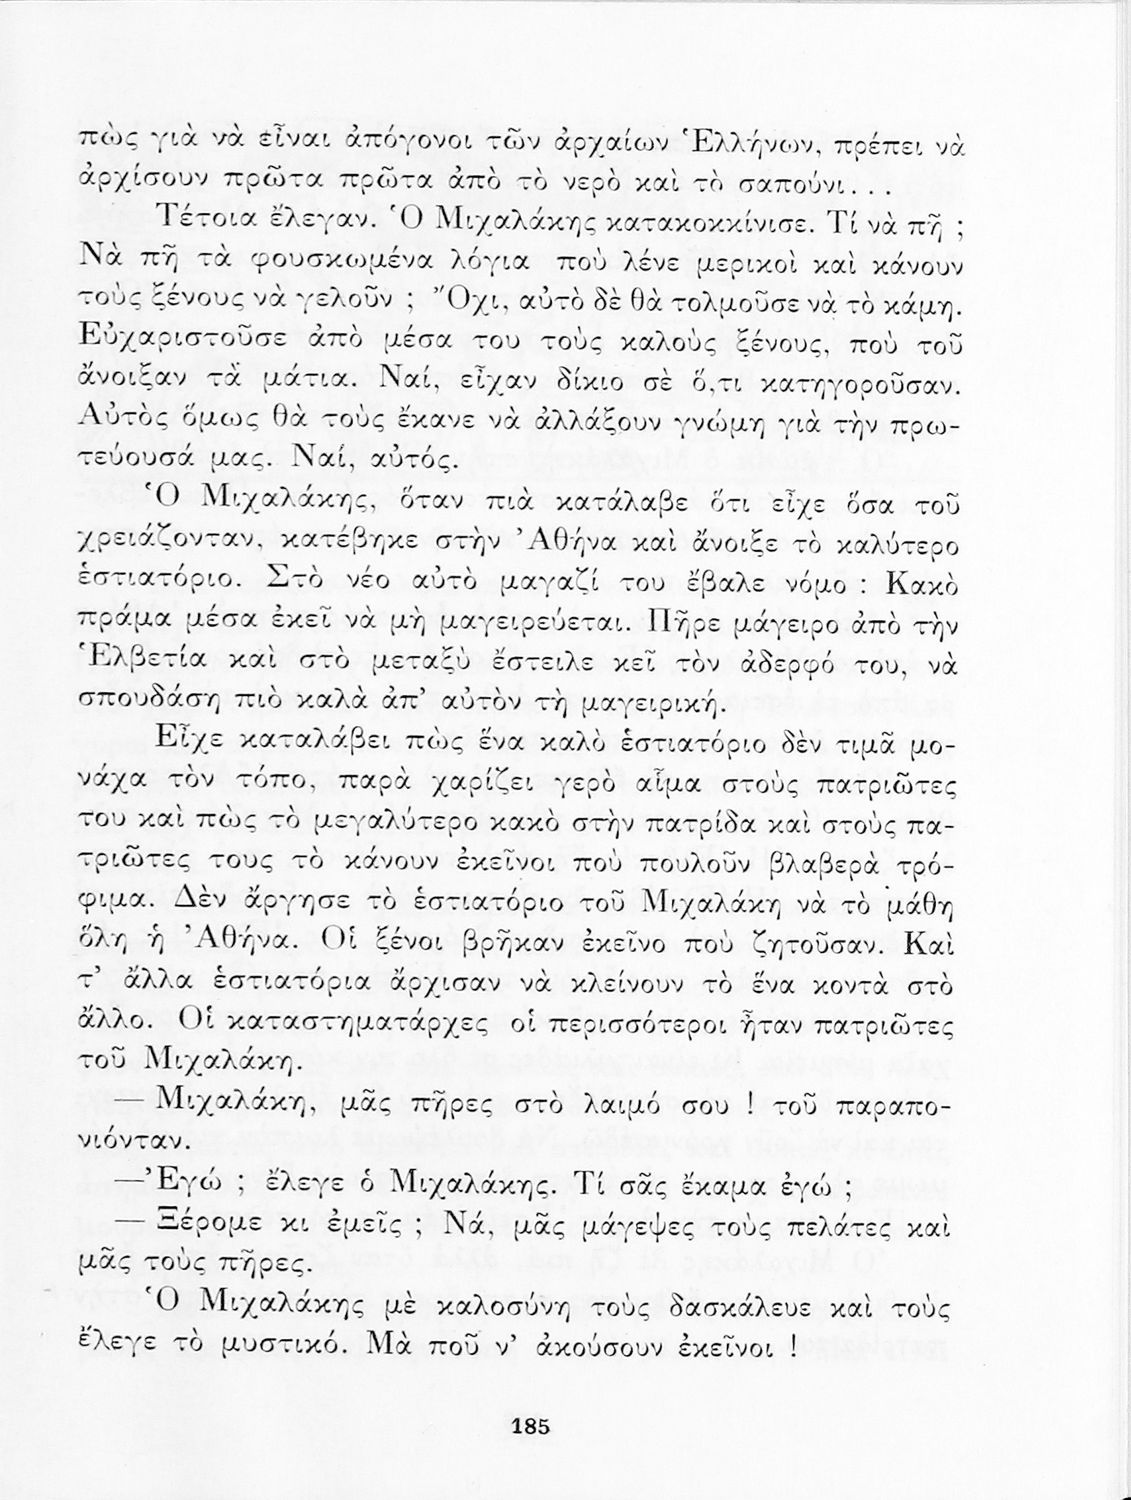 πὼς γιὰ νὰ εἶναι ἀπόγονοι τῶν ἀρχαίων Ἑλλήνων, πρέπει νὰ
ἀρχίσουν πρῶτα πρῶτα ἀπὸ τὸ νερὸ καὶ τὸ σαπούνι...
Τέτοια ἔλεγαν. Ὁ Μιχαλάκης κατακοκκίνισε. Τί νὰ πῆ ;
Νὰ πῆ τὰ φουσκωμένα λόγια ποὺ λένε μερικοὶ καὶ κάνουν
τοὺς ξένους νὰ γελοῦν ; Ὄχι, αὐτὸ δὲ θὰ τολμοῦσε νὰ τὸ κάμη.
Εὐχαριστοῦσε ἀπὸ μέσα του τοὺς καλοὺς ξένους, ποὺ τοῦ
ἄνοιξαν τὰ μάτια. Ναί, εἶχαν δίκιο σὲ ὅ,τι κατηγοροῦσαν.
Αὐτὸς ὅμως θὰ τοὺς ἔκανε νὰ ἀλλάξουν γνώμη γιὰ τὴν πρω-
τεύουσά μας. Ναί, αὐτός.
Ὁ Μιχαλάκης, ὅταν πιὰ κατάλαβε ὅτι εἶχε ὅσα τοῦ
χρειάζονταν, κατέβηκε στὴν Ἀθήνα καὶ ἄνοιξε τὸ καλύτερο
ἑστιατόριο. Στὸ νέο αὐτὸ μαγαζί του ἔβαλε νόμο : Κακὸ
πράμα μέσα ἐκεῖ νὰ μὴ μαγειρεύεται. Πῆρε μάγειρο ἀπὸ τὴν
Ἑλβετία καὶ στὸ μεταξὺ ἔστειλε κεῖ τὸν ἀδερφό του, νὰ
σπουδάση πιὸ καλὰ ἀπ' αὐτὸν τὴ μαγειρική.
Εἶχε καταλάβει πὼς ἕνα καλὸ ἑστιατόριο δὲν τιμᾶ μο-
νάχα τὸν τόπο, παρὰ χαρίζει γερὸ αἷμα στοὺς πατριῶτες
του καὶ πὼς τὸ μεγαλύτερο κακὸ στὴν πατρίδα καὶ στοὺς πα-
τριῶτες τους τὸ κάνουν ἐκεῖνοι ποὺ πουλοῦν βλαβερὰ τρό-
φιμα. Δὲν ἄργησε τὸ ἑστιατόριο τοῦ Μιχαλάκη νὰ τὸ μάθη
ὅλη ἡ Ἀθήνα. Οἱ ξένοι βρῆκαν ἐκεῖνο ποὺ ζητοῦσαν. Καὶ
τ' ἄλλα ἑστιατόρια ἄρχισαν νὰ κλείνουν τὸ ἕνα κοντὰ στὸ
ἄλλο. Οἱ καταστηματάρχες οἱ περισσότεροι ἦταν πατριῶτες
τοῦ Μιχαλάκη.
— Μιχαλάκη, μᾶς πῆρες στὸ λαιμό σου ! τοῦ παραπο-
νιόνταν.
—Ἐγώ ; ἔλεγε ὁ Μιχαλάκης. Τί σᾶς ἔκαμα ἐγώ ;
— Ξέρομε κι ἐμεῖς ; Νά, μᾶς μάγεψες τοὺς πελάτες καὶ
μᾶς τοὺς πῆρες.
Ὁ Μιχαλάκης μὲ καλοσύνη τοὺς δασκάλευε καὶ τοὺς
ἔλεγε τὸ μυστικό. Μὰ ποῦ ν' ἀκούσουν ἐκεῖνοι !
185